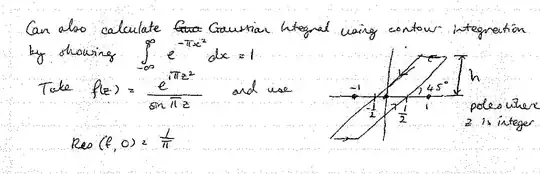 Can also calculate Gaussian Integral using contour integration
by showing ∫_{-∞}^{∞} e^{-πx²} dx = 1
Take f(z) = e^{iπz²} / sin πz and use
Res(f, 0) = 1/π
h
-1 -1/2 1/2 1 45°
poles where
z is integer